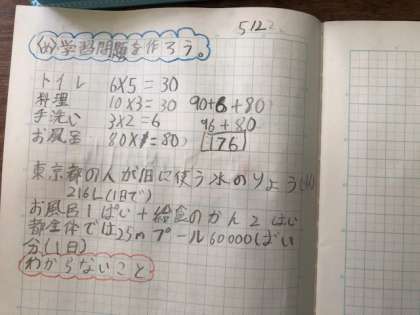 5/22
㋱学習問題を作ろう。
トイレ 6×5=30
料理 10×3=30 90+6+80
手洗い 3×2=6 96+80
お風呂 80×1=80 176
東京都の人が1日に使う水のりょう
216L(1日で)
お風呂1ぱい+給食のかん2はい
都全体では25mプール60000ぱい
分(1日)
わからないこと